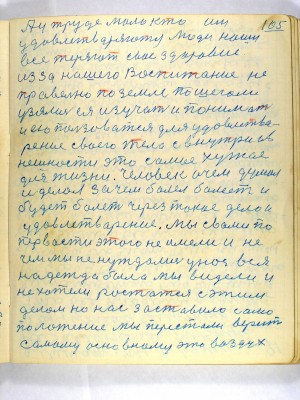 А у труде мало кто им 105
удовлетваряются Люди наши
все теряют свае здоровие
из за нашего Воспитание не
правелно по земле по щегали
узялися изучат и понимат
и его ползоватся для удовлетва-
рение своего тела с внутри и в
нешности это самае хужае
для жизни. Человек о чем думал
и делал Зачем болел болеет и
будет болет через такое дело и
удовлетварение. Мы с вами по
первасти этого не имели и не
чим мы не нуждалис у нас вся
надежда была мы видели и
не хотели ростатся с этим
делом но нас заставило само
положение мы перестали верит
самому основному это воздух